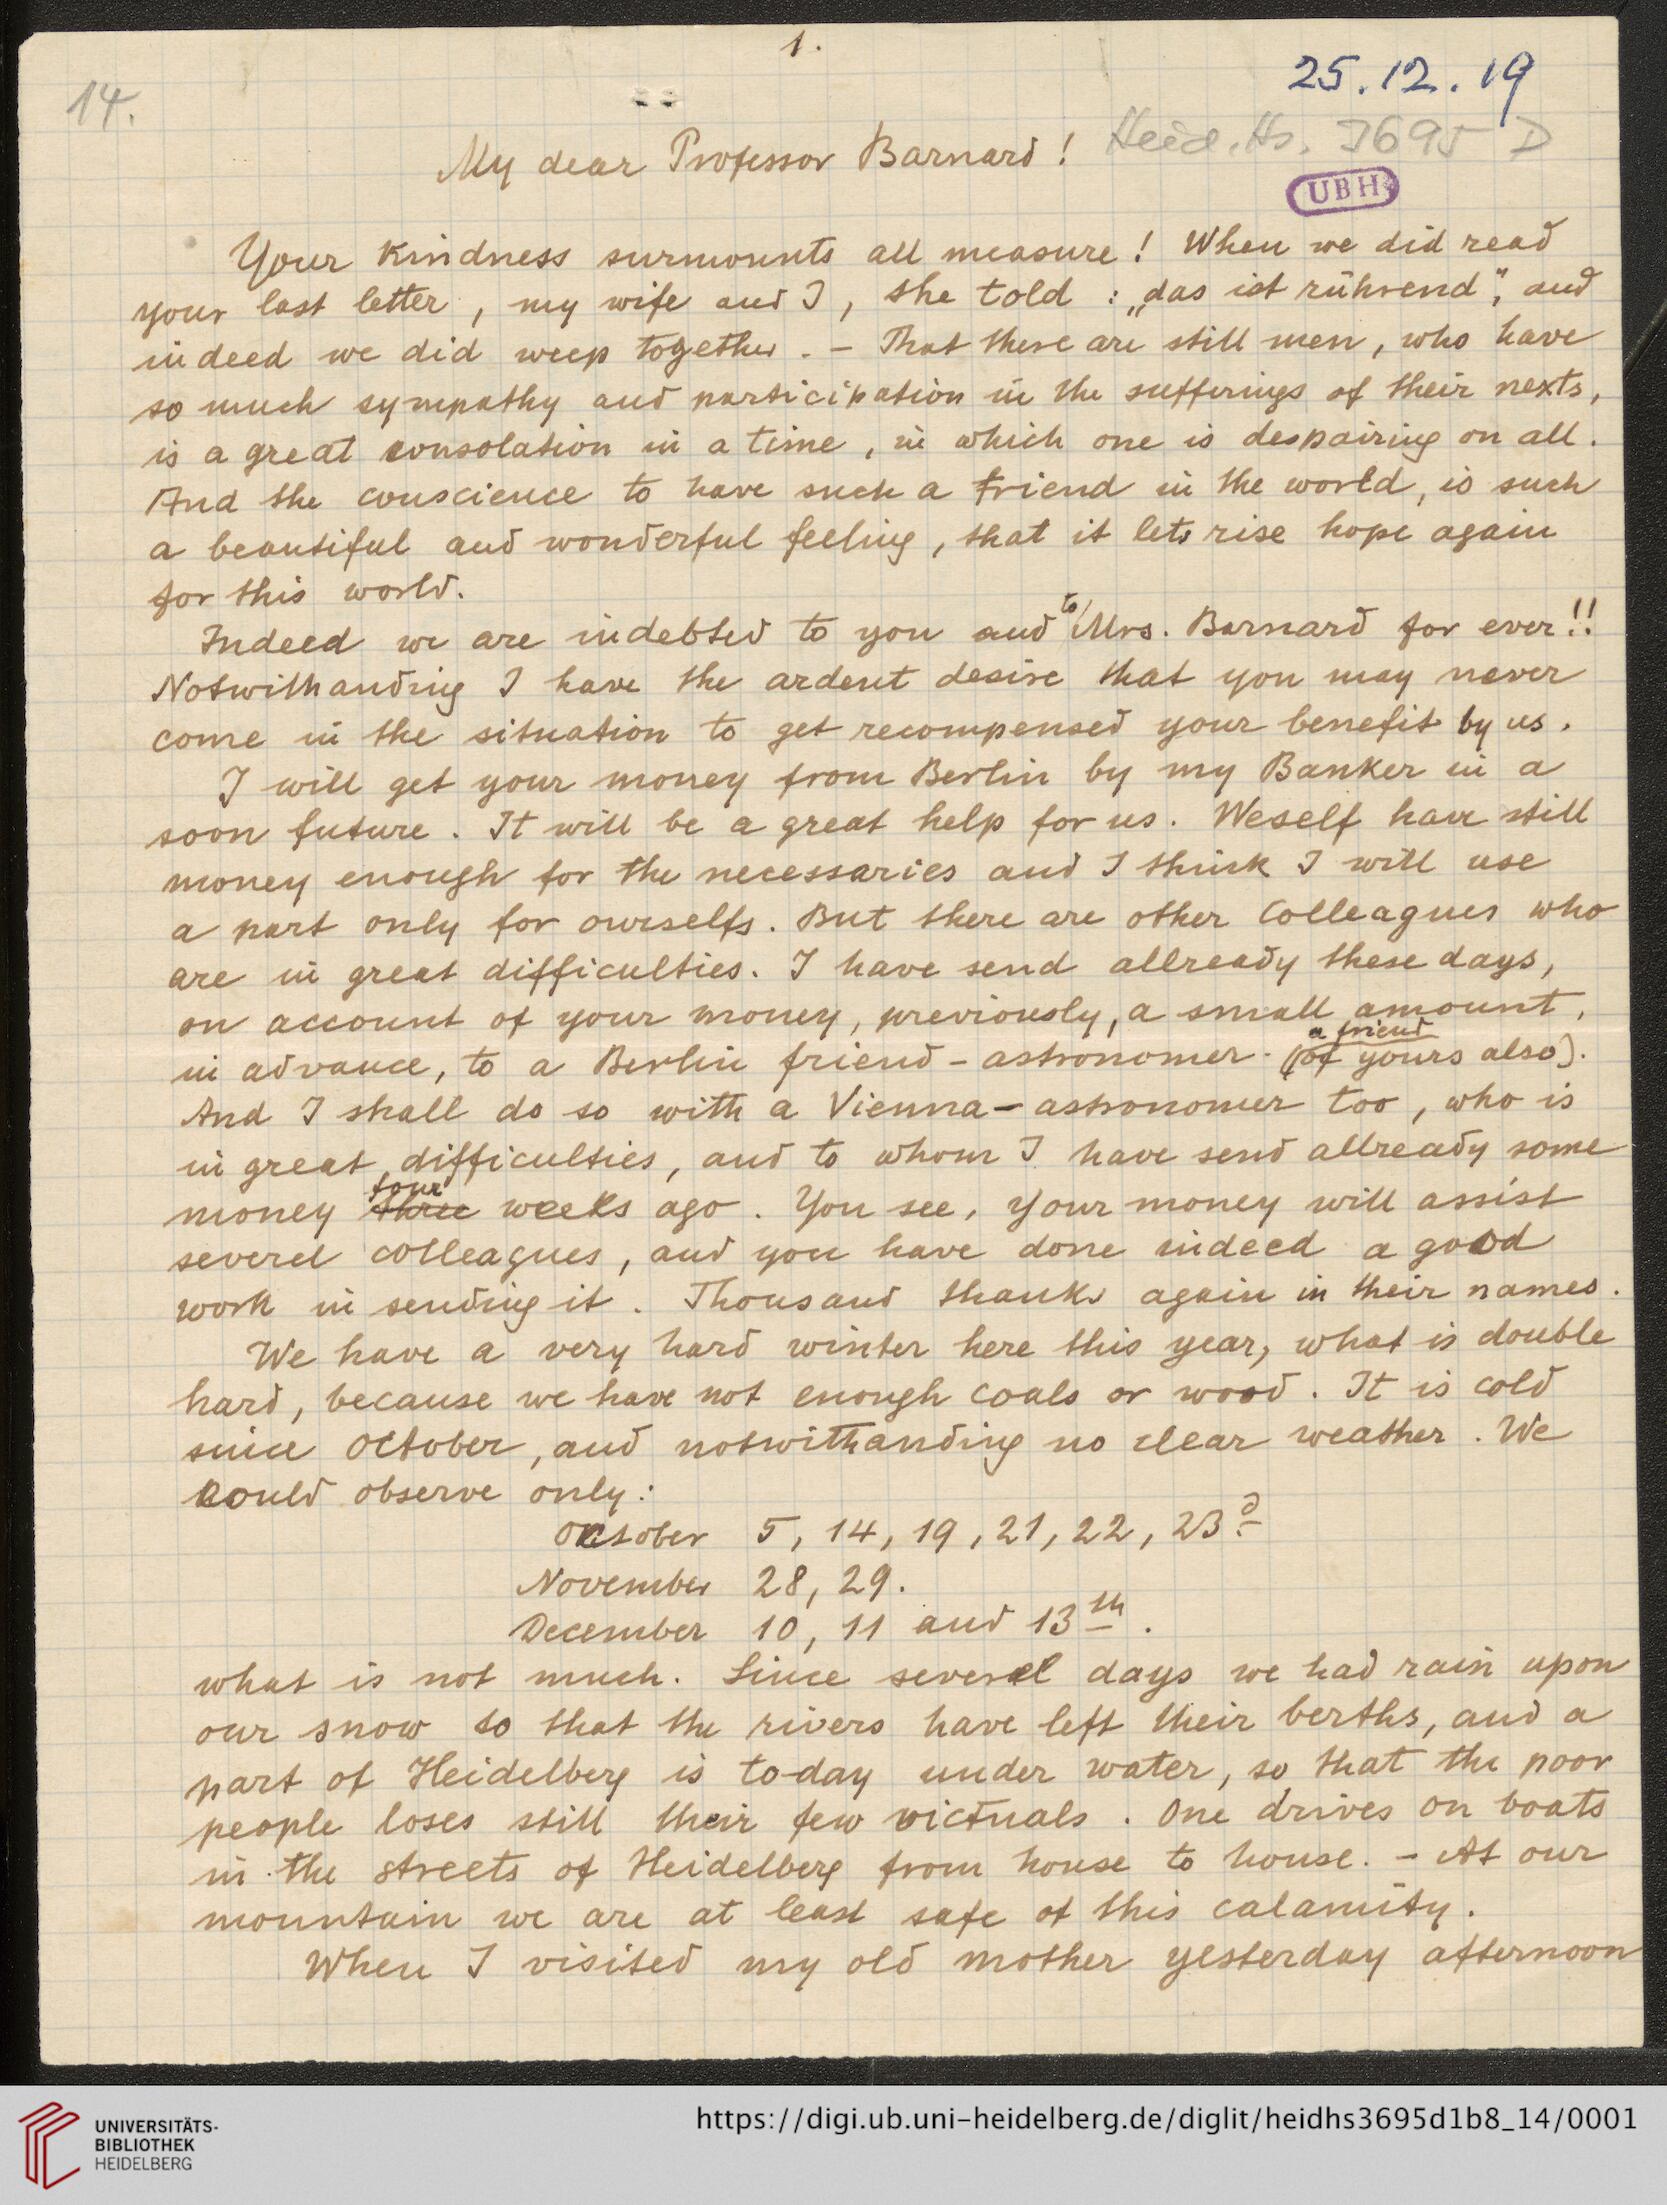 1.
14.
25.12.19
My dear Professor Barnard!
Heid. Hs. 3695 D
UBH
Your kindness surmounts all measure! When we did read
your last letter, my wife and I, she told: „das ist rührend“, and
indeed we did weep together. – That there are still men, who have
so much sympathy and participation in the sufferings of their nexts,
is a great consolation in a time, in which one is despairing on all.
And the conscience to have such a friend in the world, is such
a beautiful and wonderful feeling, that it lets rise hope again
for this world.
Indeed we are indebted to you and to Mrs. Barnard for ever!!
Notwithanding I have the ardent desire that you may never
come in the situation to get recompensed your benefit by us.
I will get your money from Berlin by my Banker in a
soon future. It will be a great help for us. Weself have still
money enough for the necessaries and I think I will use
a part only for ourselfs. But there are other Colleagues who
are in great difficulties. I have send allready these days,
on account of your money, previously, a small amount,
in advance, to a Berlin friend-astronomer. (a friend of yours also).
And I shall do so with a Vienna-astronomer too, who is
in great difficulties, and to whom I have send allready some
money three four weeks ago. You see, your money will assist
severel colleagues, and you have done indeed a good
work in sending it. Thousand thanks again in their names.
We have a very hard winter here this year, what is double
hard, because we have not enough coals or wood. It is cold
since October, and notwithanding no clear weather. We
could observe only:
October 5, 14, 19, 21, 22, 23d
November 28, 29.
December 10, 11 and 13th.
what is not much. Since several days we had rain upon
our snow so that the rivers have left their berths, and a
part of Heidelberg is to-day under water, so that the poor
people loses still their few victuals. One drives on boats
in the streets of Heidelberg from house to house. – At our
mountain we are at least safe of this calamity.
When I visited my old mother yesterday afternoon
UNIVERSITÄTS-
BIBLIOTHEK
HEIDELBERG
https://digi.ub.uni-heidelberg.de/diglit/heidhs3695d1b8_14/0001